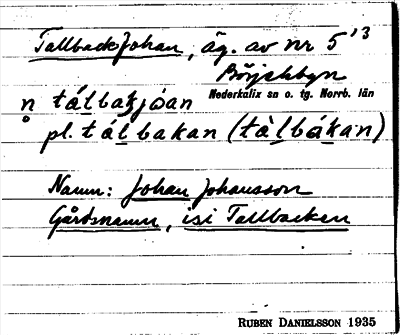 Tallbackjohan, äg. av nr 5¹³
Börjelsbyn
Nederkalix sn o. tg. Norrb. län
n tálbakjóan
pl. tálbakan (tàlbákan)
Namn: Johan Johansson
Gårdsnamn, isi Tallbacken
RUBEN DANIELSSON 1935